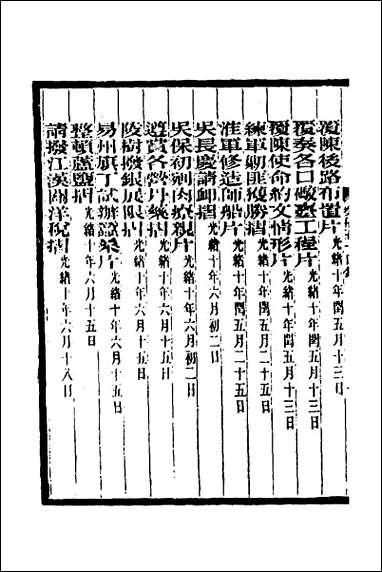 覆陳後路布置片 光緒十年閏五月十三日
覆奏各口礮臺工程片 光緒十年閏五月十三日
覆陳使命約文情形片 光緒十年閏五月十三日
練軍剿匪獲勝摺 光緒十年閏五月二十五日
淮軍修造師船片 光緒十年閏五月二十五日
吳長慶請卹摺 光緒十年六月初二日
吳保初刲肉療親片 光緒十年六月初二日
遵賞各營丹藥摺 光緒十年六月十五日
陵樹撥銀展限摺 光緒十年六月十五日
易州旗丁試辦蠶桑片 光緒十年六月十五日
整頓蘆鹽摺 光緒十年六月十五日
請撥江漢關洋稅摺 光緒十年六月十八日